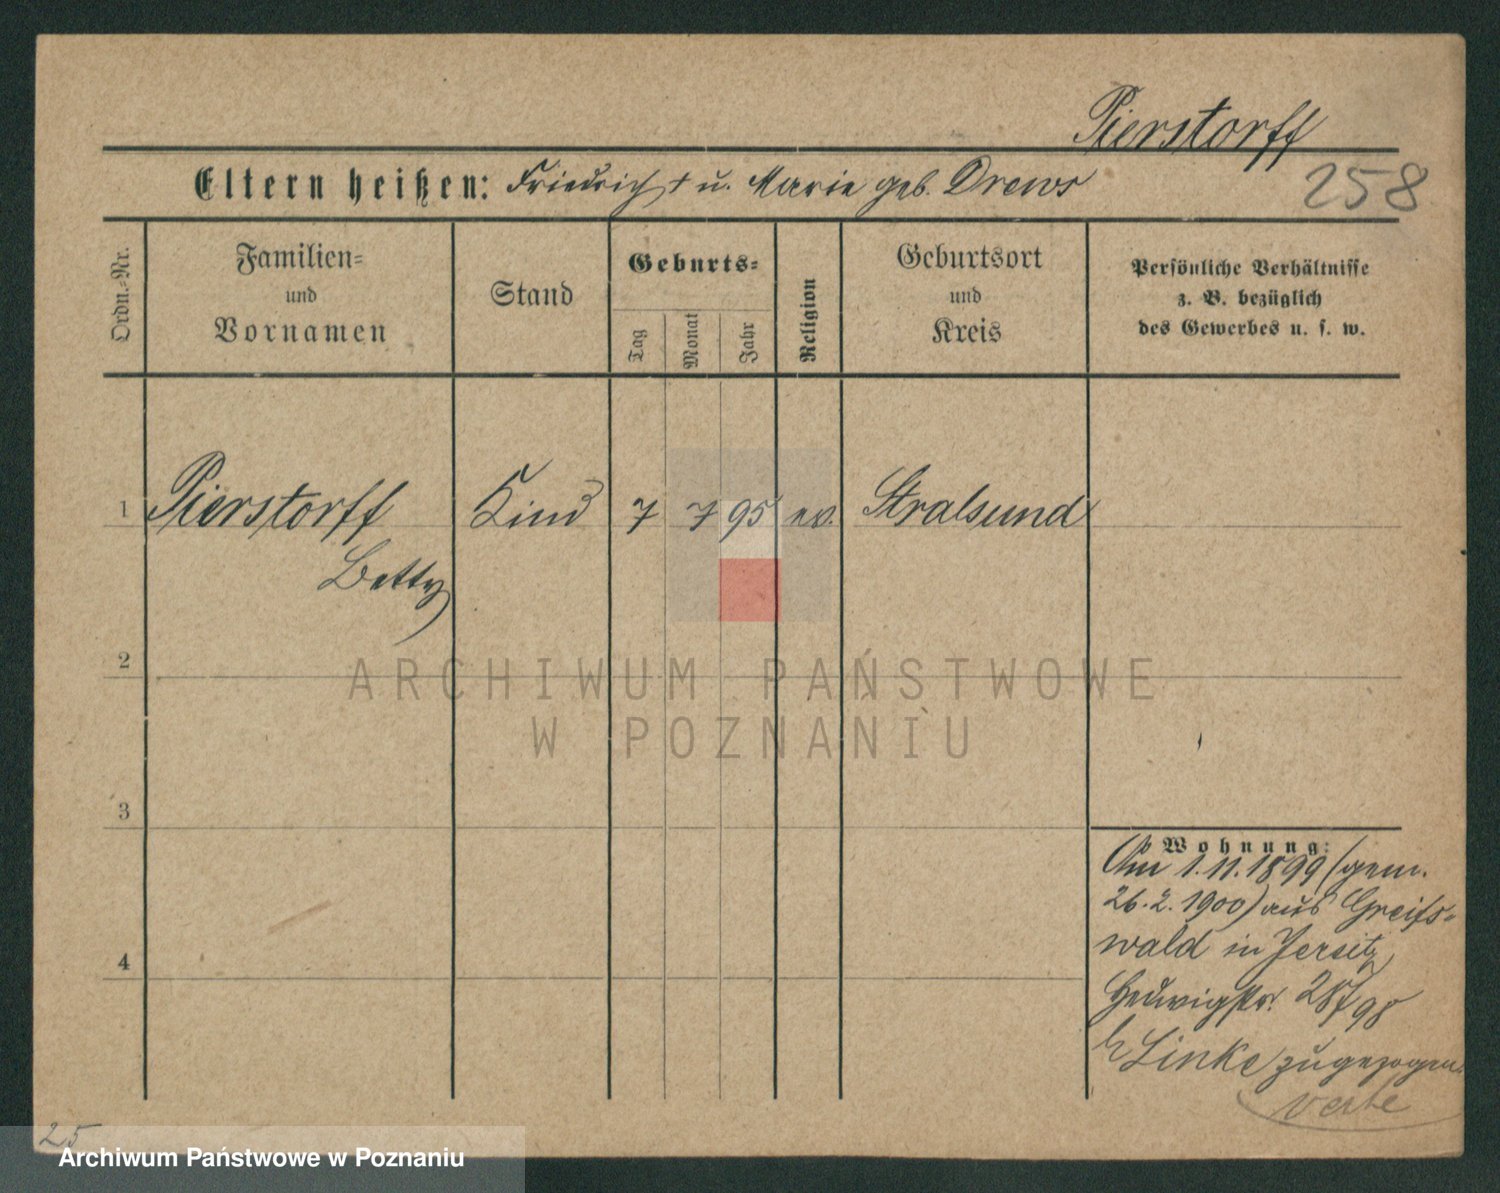 Pierstorff
Eltern heißen: Friedrich † u. Marie geb. Drews
258
Ordn.-Nr.
Familien-
und
Vornamen
Stand
Geburts-
Tag
Monat
Jahr
Religion
Geburtsort
und
Kreis
Persönliche Verhältnisse
z. B. bezüglich
des Gewerbes u. s. w.
1 Pierstorff Kind 7 7 95 ev. Stralsund
Betty
2
ARCHIWUM PAŃSTWOWE
W POZNANIU
3
Wohnung:
Am 1.11.1899 (gem.
26.2.1900) aus Greifs-
wald in Jersitz
4
Hedwigstr.
b/ Linke zugezogen.
verte
25
Archiwum Państwowe w Poznaniu